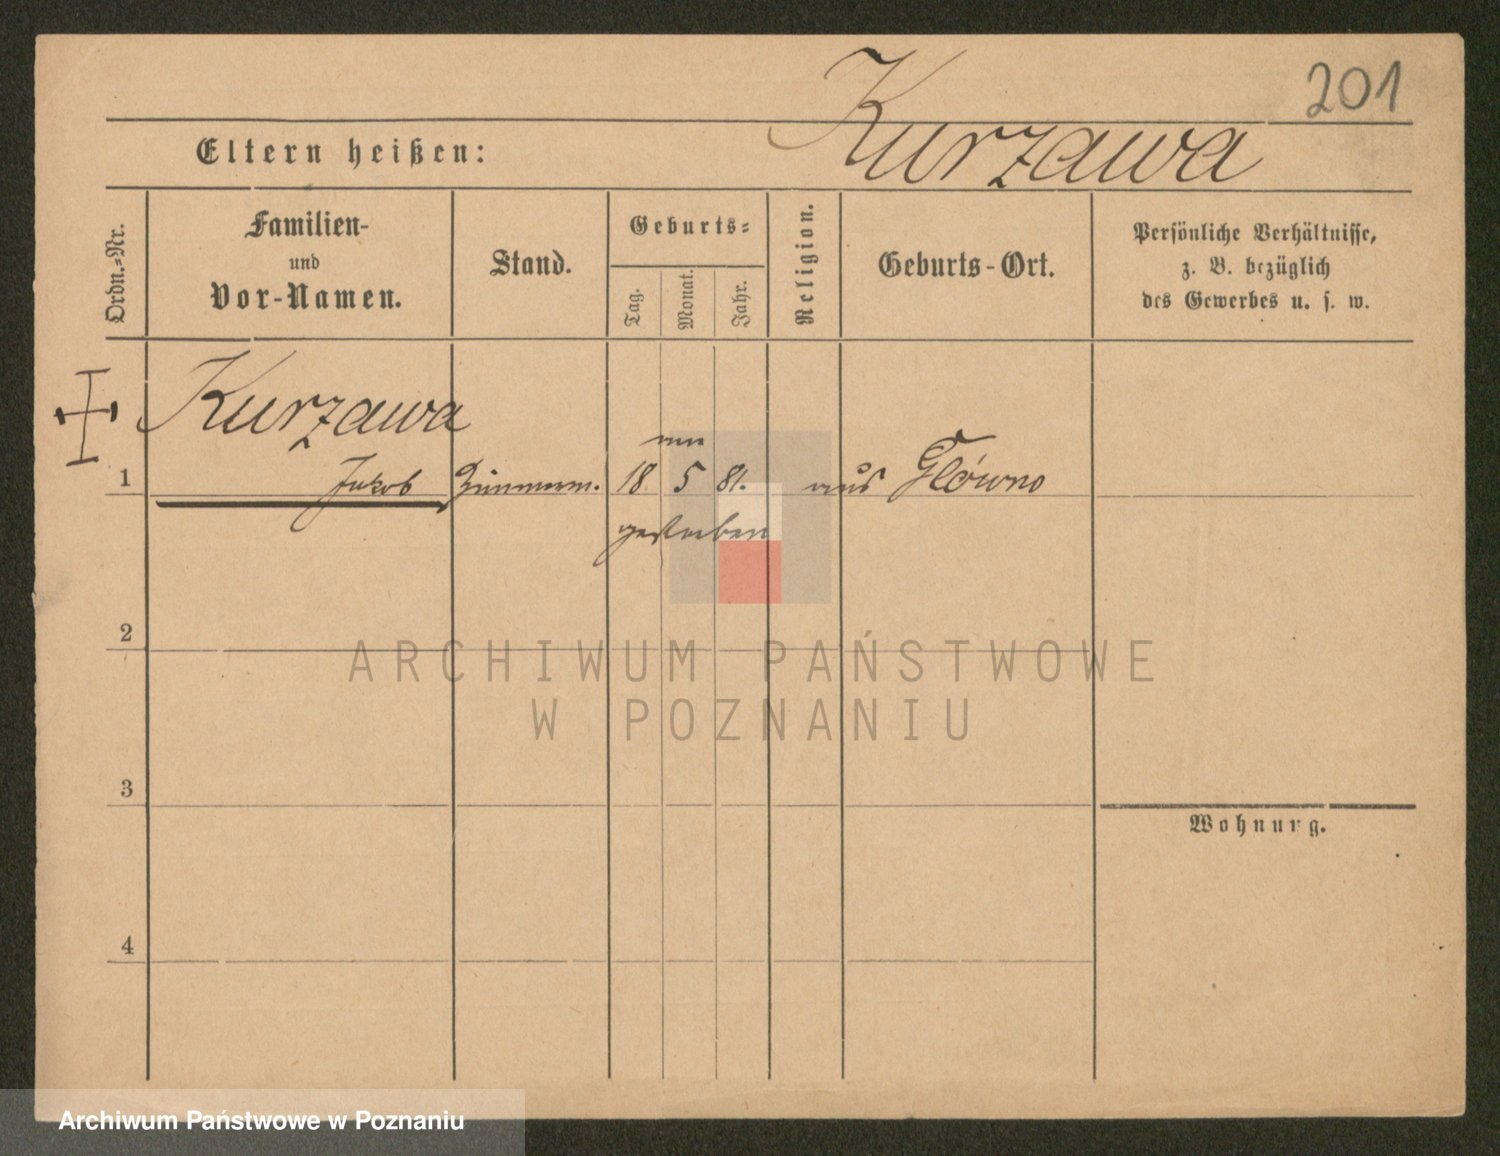 201
Kurzawa
Eltern heißen:
Ordn.=Nr.
Familien-
und
Vor-Namen.
Stand.
Geburts=
Tag.
Monat.
Jahr.
Religion.
Geburts-Ort.
Persönliche Verhältnisse,
z. B. bezüglich
des Gewerbes u. s. w.
Kurzawa
1 Jakob Zimmerm. 18 5 81. aus Główno
gestorben
2
ARCHIWUM PAŃSTWOWE
W POZNANIU
3
Wohnung.
4
Archiwum Państwowe w Poznaniu